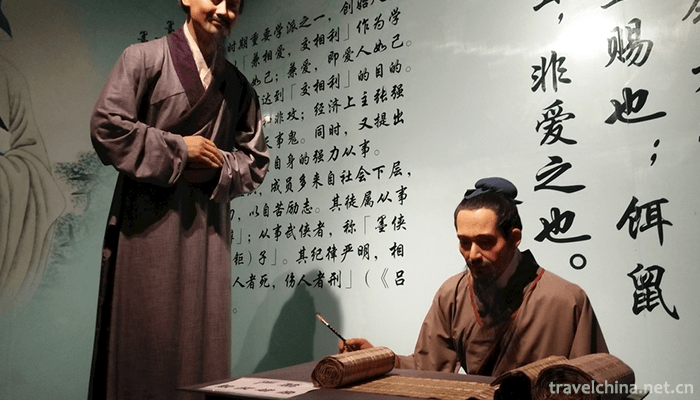 时期重要学派之一，创始人
「兼相爱，交相利」作为学
如己；兼爱，即爱人如己。
达到「交相利」的目的。
非攻；经济上主张强
事鬼。同时，又提出
自身的强力从事。
，成员多来自社会下层，
，以自苦励志。其徒属从事
；从事武侠者，称「墨侠
钜）子」。其纪律严明，相
人者死，伤人者刑」（《吕
。
赐也；饵鼠
，非爱之也。
travelchina.net.cn